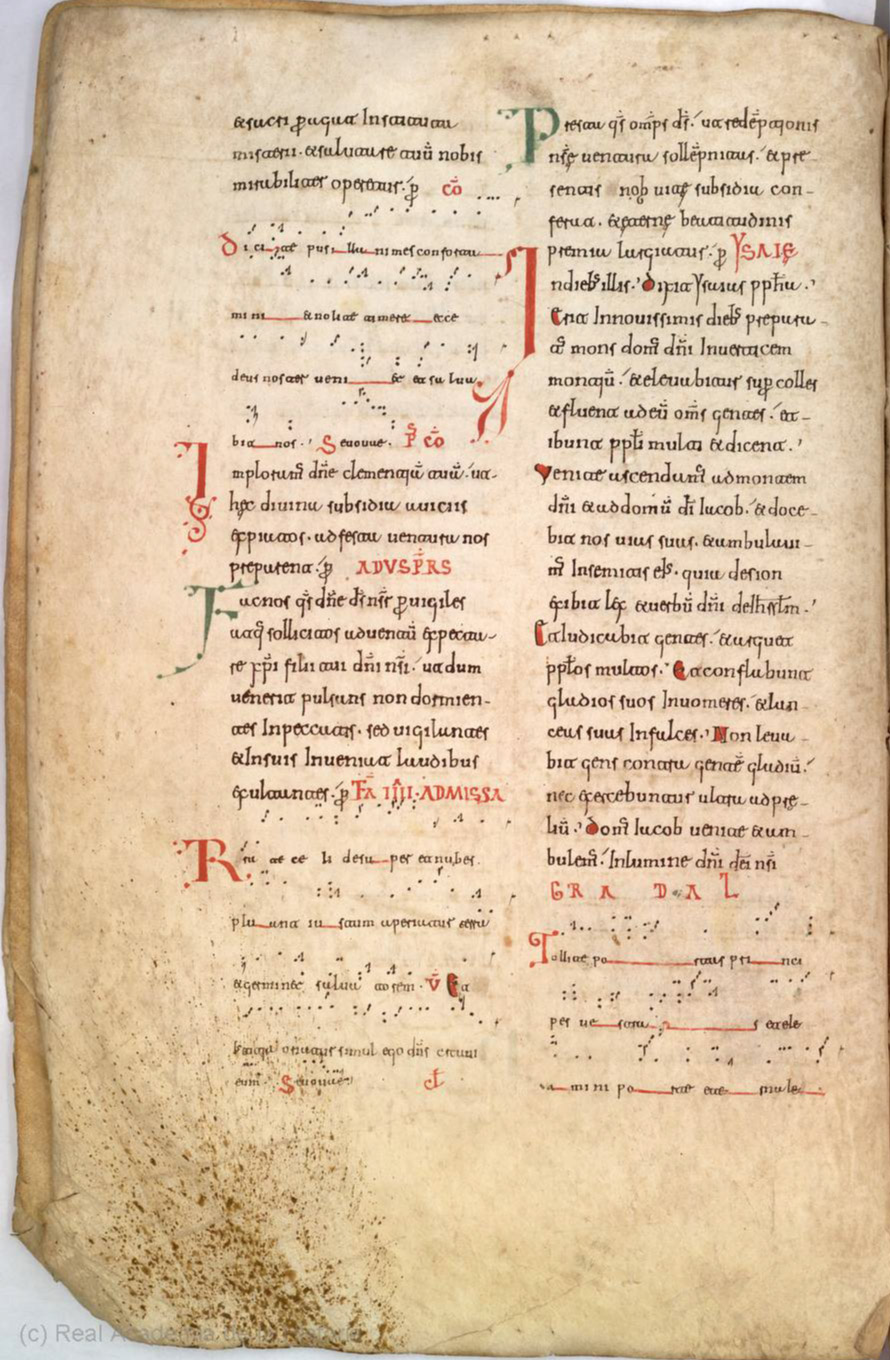 & sacri p̄agat Instituta
misterii · & salutare tuū nobis
mirabiliter operetur · p̄ CŌ
Dicite pusillanimes conforta
mini & nolite timere ecce
deus noster veni et et salva
bit nos · Seuoue · PS̄ CŌ
Imploram̄ dn̄e clementiā tuā · ut
hęc divina subsidia a uiciis
expiatos · ad festa uentura nos
preparent · p̄ ADUSPR̄S
Fac nos q̄s dn̄e ds̄ nsr̄ p̄uigiles
atq̄ sollicitos aduentū expecta
re xp̄i filii tui dn̄i nsī · ut dum
ueneria pulsans non dormien-
tes In peccatis · sed uigilantes
& In suis Inueniat laudibus
exultantes · p̄ FR̄ IIII · AD MISSA
Rorate celi desuper et nubes
pluant iustum aperiatur terra
& germinet saluatorem · V̄ Et
oriatur simul ego dn̄s creaui
eum · Seuoue CŁ
Presta q̄s om̄ps ds̄ · ut redēptionis
nsę uentura sollēpnitas · & pre
sentis nob uitę subsidia con-
ferat · & ęternę beatitudinis
premia largiatur · p̄ YSAIĘ
In dieb illis · Dixit Ysaias pph̄a ·
Erit In nouissimis dieb preparatu-
s mons dom̄ dn̄i In uerticem
montiū · & eleuabitur sup̄ colles
& fluent ad eū om̄s gentes · et
ibunt ppl̄i multi & dicent ·
Venite ascendam̄ ad montem
dn̄i & ad domū dī Iacob · & doce-
bit nos uias suas · & ambulaui-
m̄ In semitis eī · quia de sion
exibit lex & uerbū dn̄i de ihrslm̄ ·
Et iudicabit gentes · & arguet
ppl̄os multos · Et conflabunt
gladios suos In uomeres · & lan-
ceas suas In falces · Non leua-
bit gens contra gentē gladiū ·
nec exercebuntur ultra ad prę-
liū · Dom̄ Iacob uenite & am-
bulem̄ · In lumine dn̄i deī nsī
GRADAL
Tollite portas princi
pes uestras et ele
vamini porte eternale
(c) Real Academia de la Historia